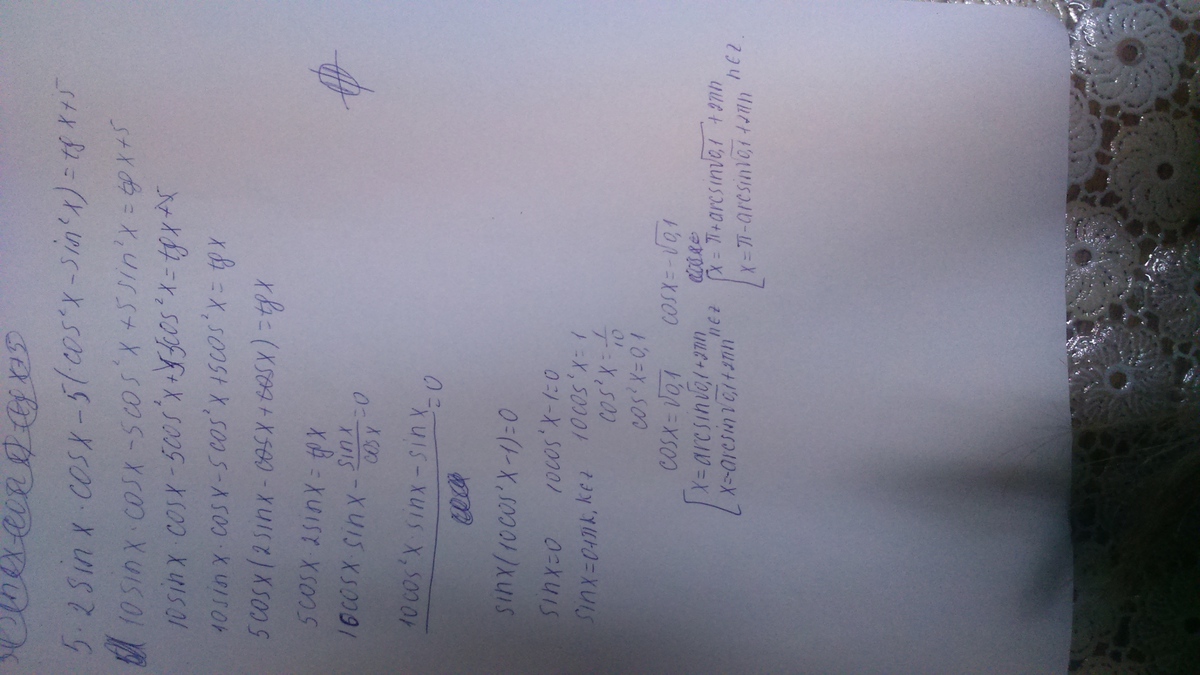 5 · 2 sin x · cos x − 5 (cos²x − sin²x) = tg x + 5
10 sin x · cos x − 5 cos²x + 5 sin²x = tg x + 5
10 sin x cos x − 5cos²x + 5 − 5cos²x = tg x + 5
10 sin x · cos x − 5 cos²x + 5cos²x = tg x
5cos x (2 sin x − cos x + cos x) = tg x
5cos x · 2 sin x = tg x
10cos x · sin x − sin x / cos x = 0
10 cos²x · sin x − sin x = 0
sin x (10 cos²x − 1) = 0
sin x = 0 10 cos²x − 1 = 0
sin x = 0 + πk, k∈z 10 cos²x = 1
cos²x = 1/10
cos²x = 0,1
cos x = √0,1 cos x = −√0,1
[ x = arcsin√0,1 + 2πn
x = −arcsin√0,1 + 2πn n∈z
[ x = π + arcsin√0,1 + 2πn
x = π − arcsin√0,1 + 2πn n∈z.